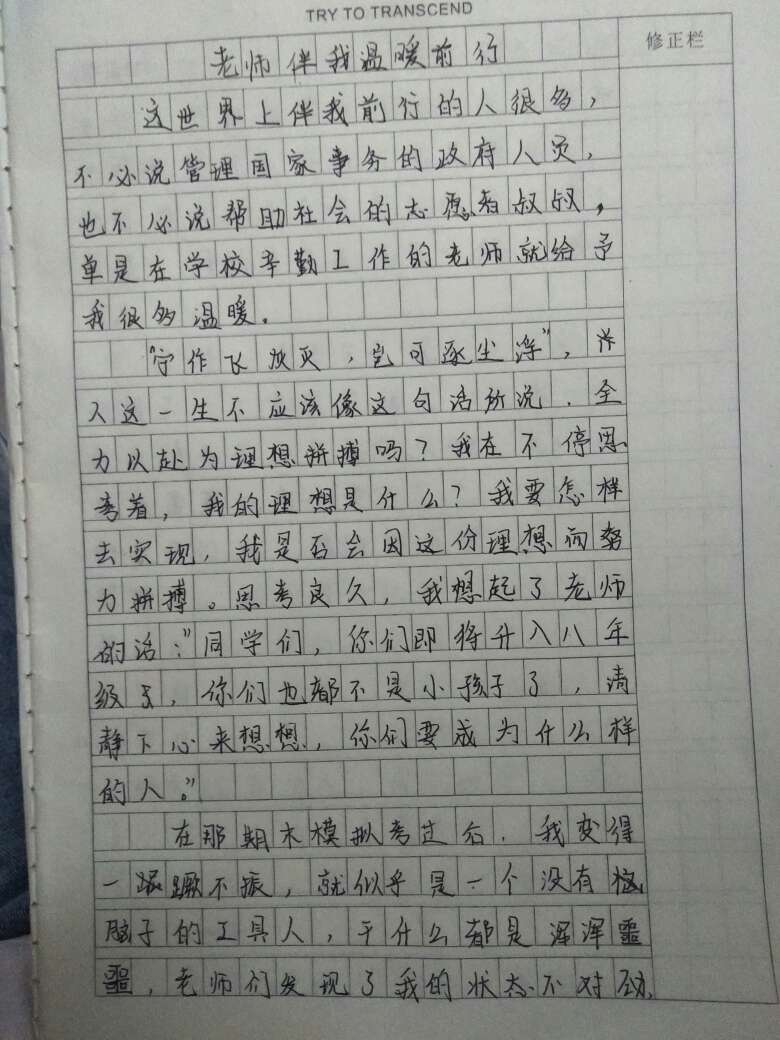 TRY TO TRANSCEND
修正栏
老师伴我温暖前行
这世界上伴我前行的人很多，
不必说管理国家事务的政府人员，
也不必说帮助社会的志愿者叔叔，
单是在学校辛勤工作的老师就给予
我很多温暖。
“宁作飞灰灭，岂可逐尘浮”，
人这一生不应该像这句话所说，全
力以赴为理想拼搏吗？我在不停思
考着，我的理想是什么？我要怎样
去实现，我是否会因这份理想而努
力拼搏。思考良久，我想起了老师
的话：“同学们，你们即将升入八年
级了，你们也都不是小孩子了，请
静下心来想想，你们要成为什么样
的人。”
在那期末模拟考过后，我变得
一蹶不振，就似乎是一个没有
脑子的工具人，干什么都是浑浑噩
噩，老师们发现了我的状态不对劲，